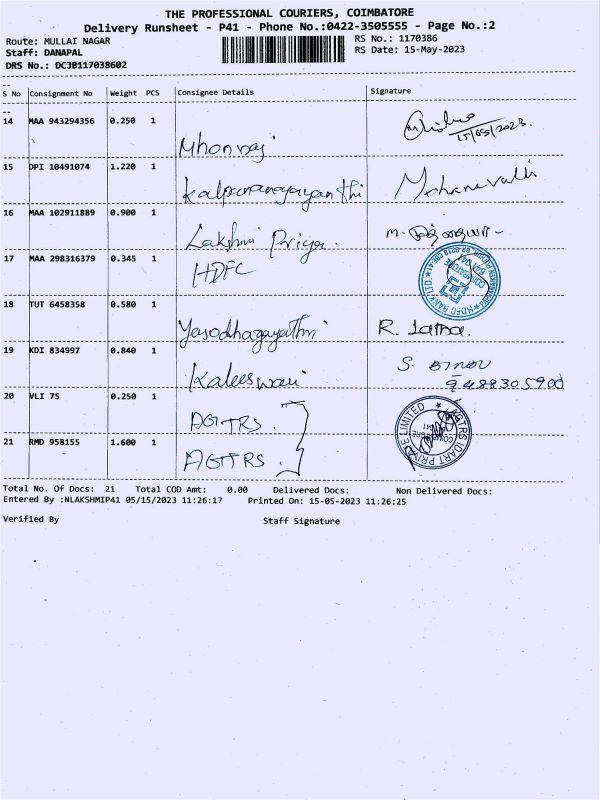 THE PROFESSIONAL COURIERS, COIMBATORE
Delivery Runsheet - P41 - Phone No.:0422-3505555 - Page No.:2
Route: MULLAI NAGAR
RS No.: 1170386
Staff: DANAPAL
RS Date: 15-May-2023
DRS No.: DCJB117038602
S No Consignment No Weight PCS Consignee Details Signature
14 MAA 943294356 0.250 1
15/05/2023.
15 DPI 10491074 1.220 1
Mohanavalli
16 MAA 102911889 0.900 1
Lakshmi Priya.
17 MAA 298316379 0.345 1
HDFC
HDFC BANK LTD.
COIMBATORE
18 TUT 6458358 0.580 1
R. Latha.
19 KDI 834997 0.840 1
Kaleeswari
S.
9488305900
20 VLI 75 0.250 1
21 RMD 958155 1.600 1
Total No. Of Docs: 21 Total COD Amt: 0.00 Delivered Docs: Non Delivered Docs:
Entered By :NLAKSHMIP41 05/15/2023 11:26:17 Printed On: 15-05-2023 11:26:25
Verified By Staff Signature